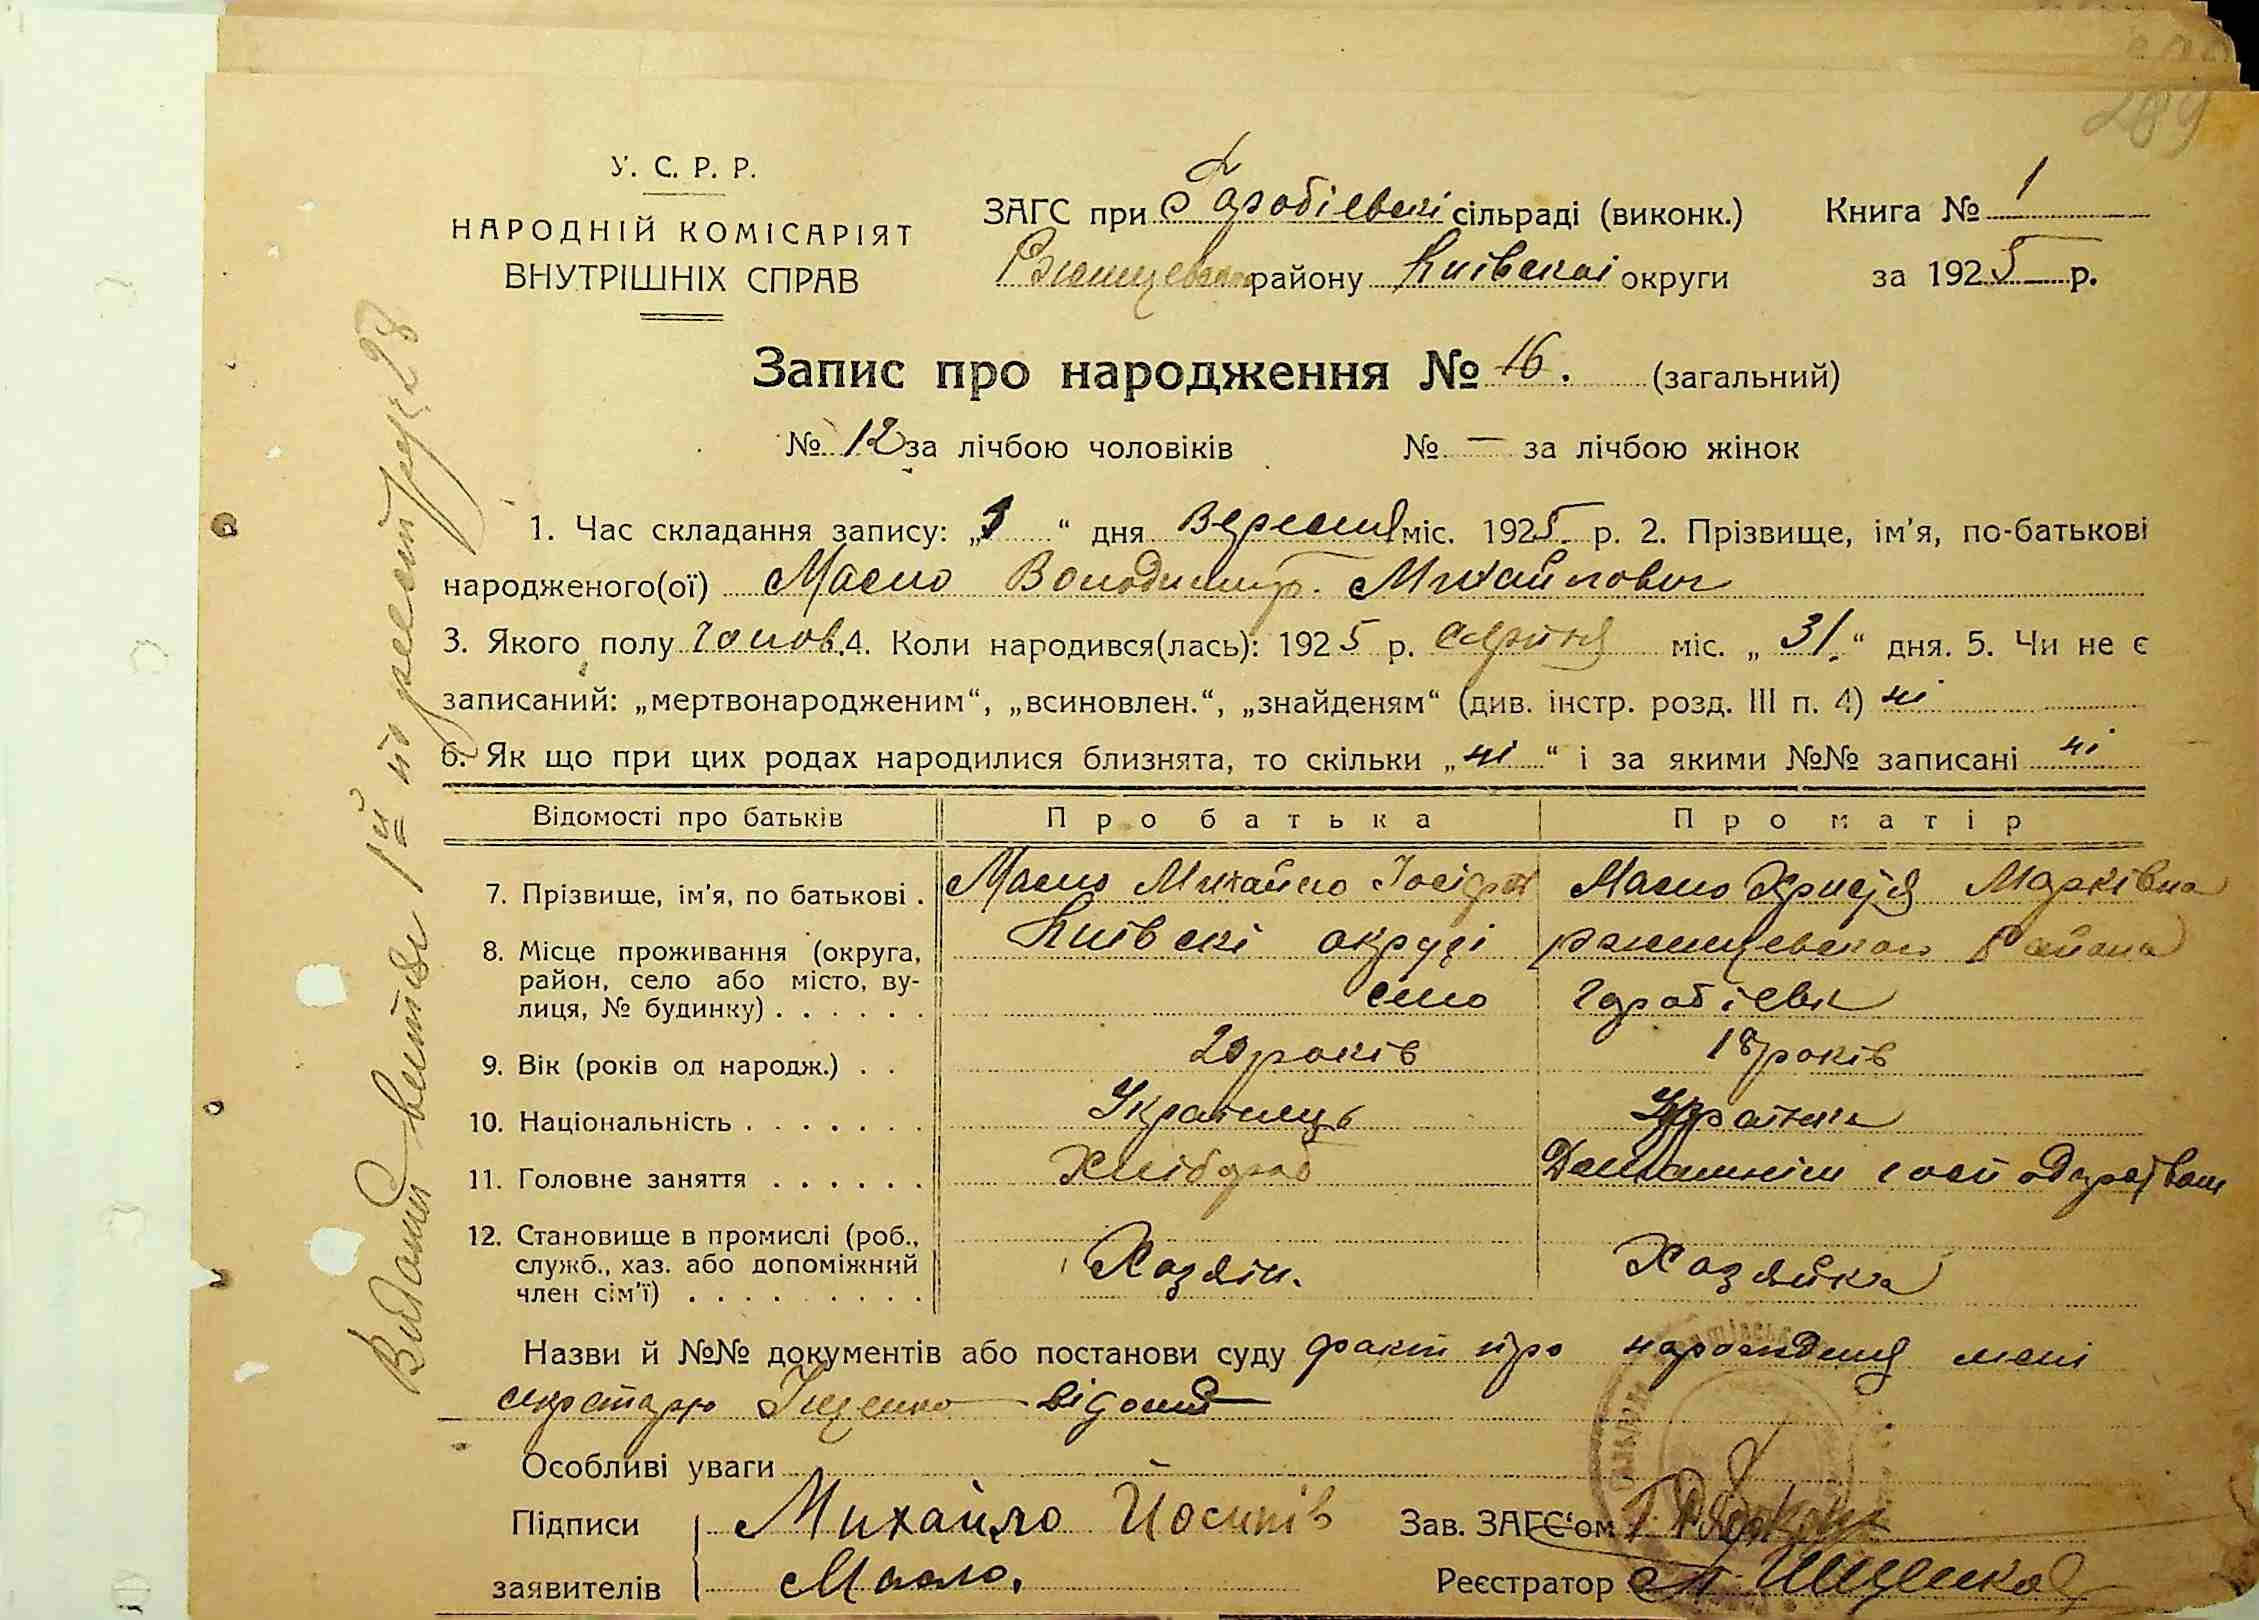 289
У. С. Р. Р.
НАРОДНІЙ КОМІСАРІЯТ
ВНУТРІШНІХ СПРАВ
ЗАГС при Горобіевскі сільраді (виконк.) Книга № 1
району Київскої округи за 1925 р.
Запис про народження № 16. (загальний)
№ 12 за лічбою чоловіків № — за лічбою жінок
1. Час складання запису: „3“ дня Вересня міс. 1925 р. 2. Прізвище, ім'я, по-батькові
народженого(ої) Масло Володимир. Михайлович
3. Якого полу чолов. 4. Коли народився(лась): 1925 р. серпня міс. „31.“ дня. 5. Чи не є
записаний: „мертвонародженим“, „всиновлен.“, „знайденям“ (див. інстр. розд. III п. 4) ні
6. Як що при цих родах народилися близнята, то скільки „ні“ і за якими №№ записані ні
Відомості про батьків Про батька Про матір
7. Прізвище, ім'я, по батькові . Масло Михайло Масло Христя Марківна
8. Місце проживання (округа, Київскі окрузі
район, село або місто, ву-
лиця, № будинку) . . . . . . село Горобіевк
9. Вік (років од народж.) . . 20 років 18 років
10. Національність . . . . . . . Українець Українка
11. Головне заняття . . . . . . Хлібороб Домашнім господарством
12. Становище в промислі (роб.,
служб., хаз. або допоміжний Хазяін. Хазяйка
член сім'ї) . . . . . . . . .
Назви й №№ документів або постанови суду факт про народженя мені
секретарю Іщенко відомий
Особливі уваги
Підписи Михайло Йосипів Зав. ЗАГС'ом
заявителів Масло. Реєстратор Іщенко